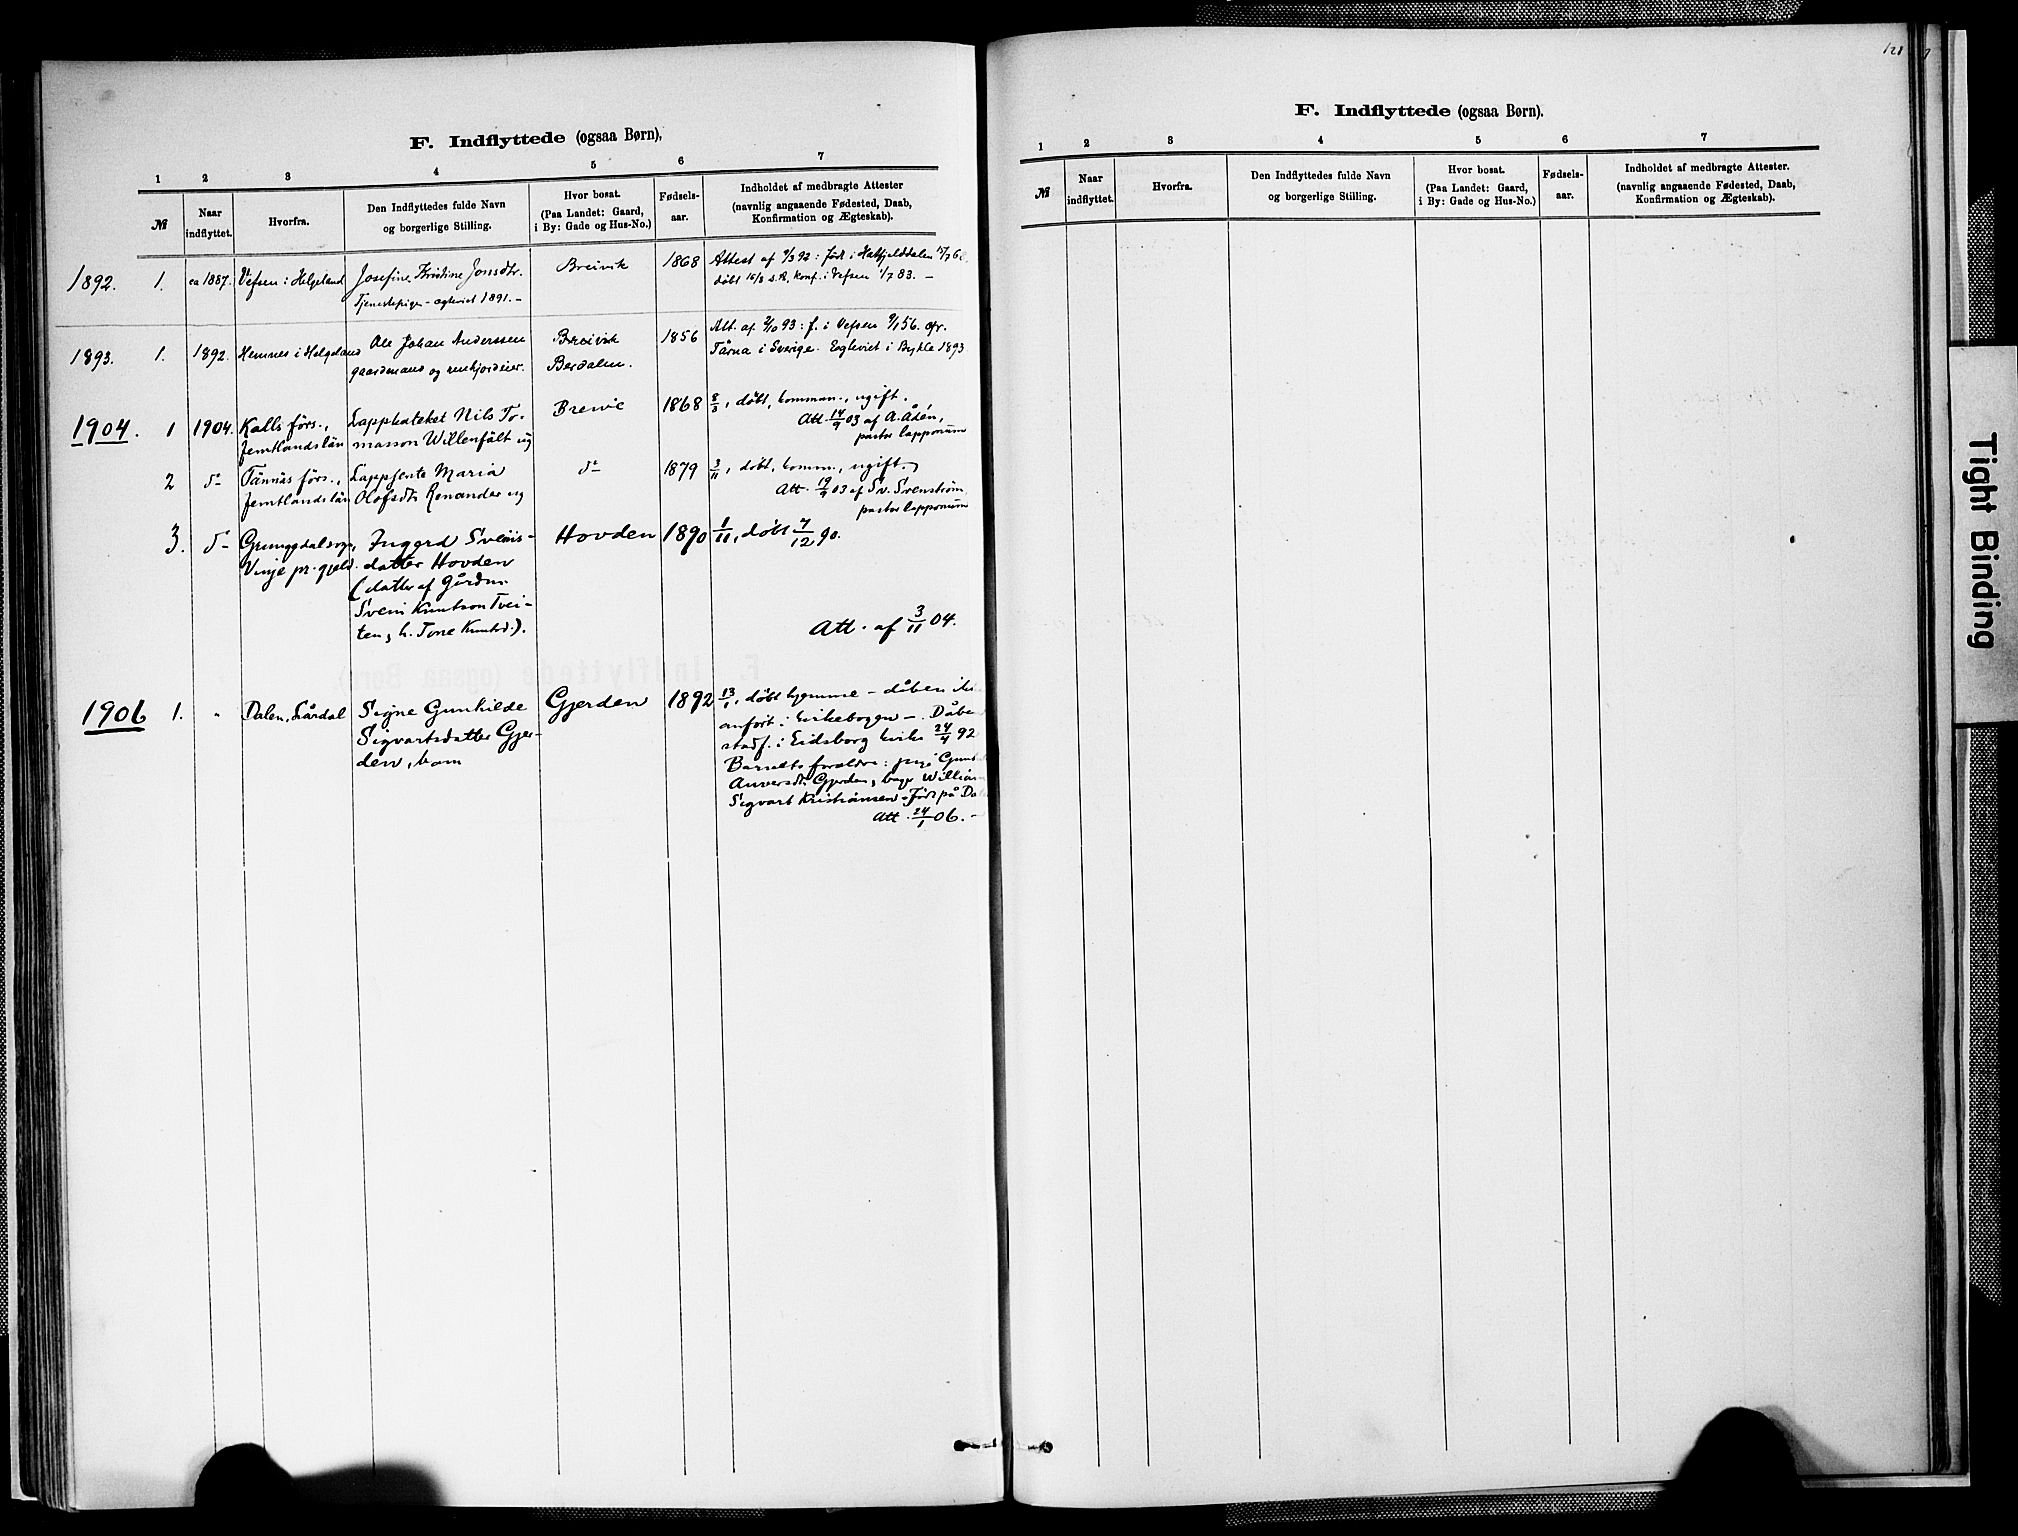 F. Indflyttede (ogsaa Børn),
1 2 3 4 5 6 7
№ Naar indflyttet. Hvorfra. Den Indflyttedes fulde Navn og borgerlige Stilling. Hvor bosat. (Paa Landet: Gaard, i By: Gade og Hus-No.) Fødsels-aar. Indholdet af medbragte Attester (navnlig angaaende Fødested, Daab, Konfirmation og Ægteskab).
1892. 1. ca 1887. Vefsen i Helgeland Josefine Kristine Jonsdtr. Breivik 1868 Attest af 9/3 92: født i Hatfjelddalen
Tjenestepige - ægteviet 1891. - døbt 16/8 s. A., konf. i Vefsen 1/7 83. -
1893. 1. 1892. Hemnes i Helgeland Ole Johan Anderssen Breivik 1856 Att. af 2/10 93: f. i Vefsen 9/1 56.
gaardmand og renhjordeier. Berdalen. Tärna i Sverige. Egteviet i Bykle 1893
1904. 1 1904. Kalls förs., Lappkateket Nils To- Brevic 1868 8/3, døbt, komman., ugift.
Jemtlandslän masson Willenfält ug Att. 14/9 03 af A. Ådén,
pastor lapponum
2 do Tännäs förs., Lappjente Maria do 1879 3/11, døbt, komm., ugift.
Jemtlandslän Olofsdtr Renander ug Att. 19/9 03 af Sv. Svenström
pastor lapponum
3. do Grunggdal sogn, Ingerd Sveins- Hovden 1890 1/11, døbt 7/12 90.
Vinje pr. gjeld. datter Hovden
(datter af Gårdm.
Svein Knutson Tvei-
ten, h. Tone Knutsd.). Att. af 3/11 04.
1906 1. " Dalen, Lårdal Signe Gunhilde Gjerden 1892 13/1, døbt hjemme - dåben
Sigvartsdatter Gjer- anført i kirkebogen -. Dåben
den, barn stadf. i Eidsborg kirke 24/4 92
Barnets forældre: pige
Anversdtr Gjerden, bager William
Sigvart Kristiansen - Født på
Att. 24/1 06. -
121
F. Indflyttede (ogsaa Børn).
1 2 3 4 5 6 7
№ Naar indflyttet. Hvorfra. Den Indflyttedes fulde Navn og borgerlige Stilling. Hvor bosat. (Paa Landet: Gaard, i By: Gade og Hus-No.) Fødsels-aar. Indholdet af medbragte Attester. (navnlig angaaende Fødested, Daab, Konfirmation og Ægteskab).
Tight Binding